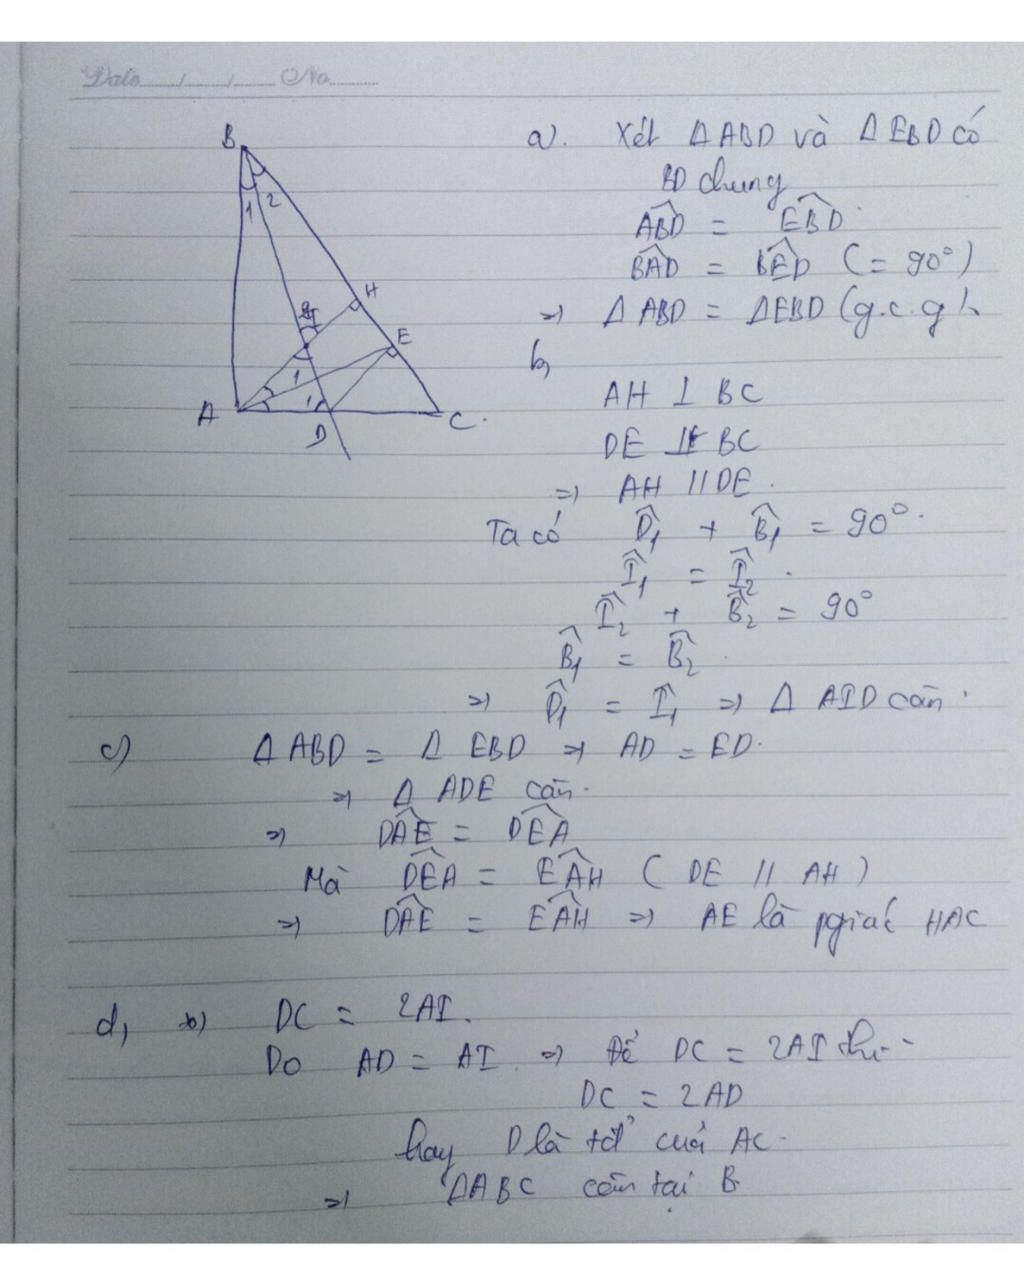 Date / / No
B
1 2
H
I
E
1
1
A
D
C
a). Xét ΔABD và ΔEBD có
BD chung
ABD̂ = EBD̂
BAD̂ = BED̂ (= 90°)
⇒ ΔABD = ΔEBD (g.c.g).
b)
AH ⊥ BC
DE ⊥ BC
⇒ AH // DE.
Ta có D̂₁ + B̂₁ = 90°.
Î₁ = Î₂.
Î₂ + B̂₂ = 90°
B̂₁ = B̂₂
⇒ D̂₁ = Î₁ ⇒ Δ AID cân.
c) ΔABD = Δ EBD ⇒ AD = ED.
⇒ Δ ADE cân.
⇒ DAÊ = DEÂ
Mà DEÂ = EAĤ (DE // AH)
⇒ DAÊ = EAĤ ⇒ AE là pgiác HAC
d, b) DC = 2AI.
Do AD = AI ⇒ Để DC = 2AI thì
DC = 2AD
hay D là tđ' của AC.
⇒ ΔABC cân tại B